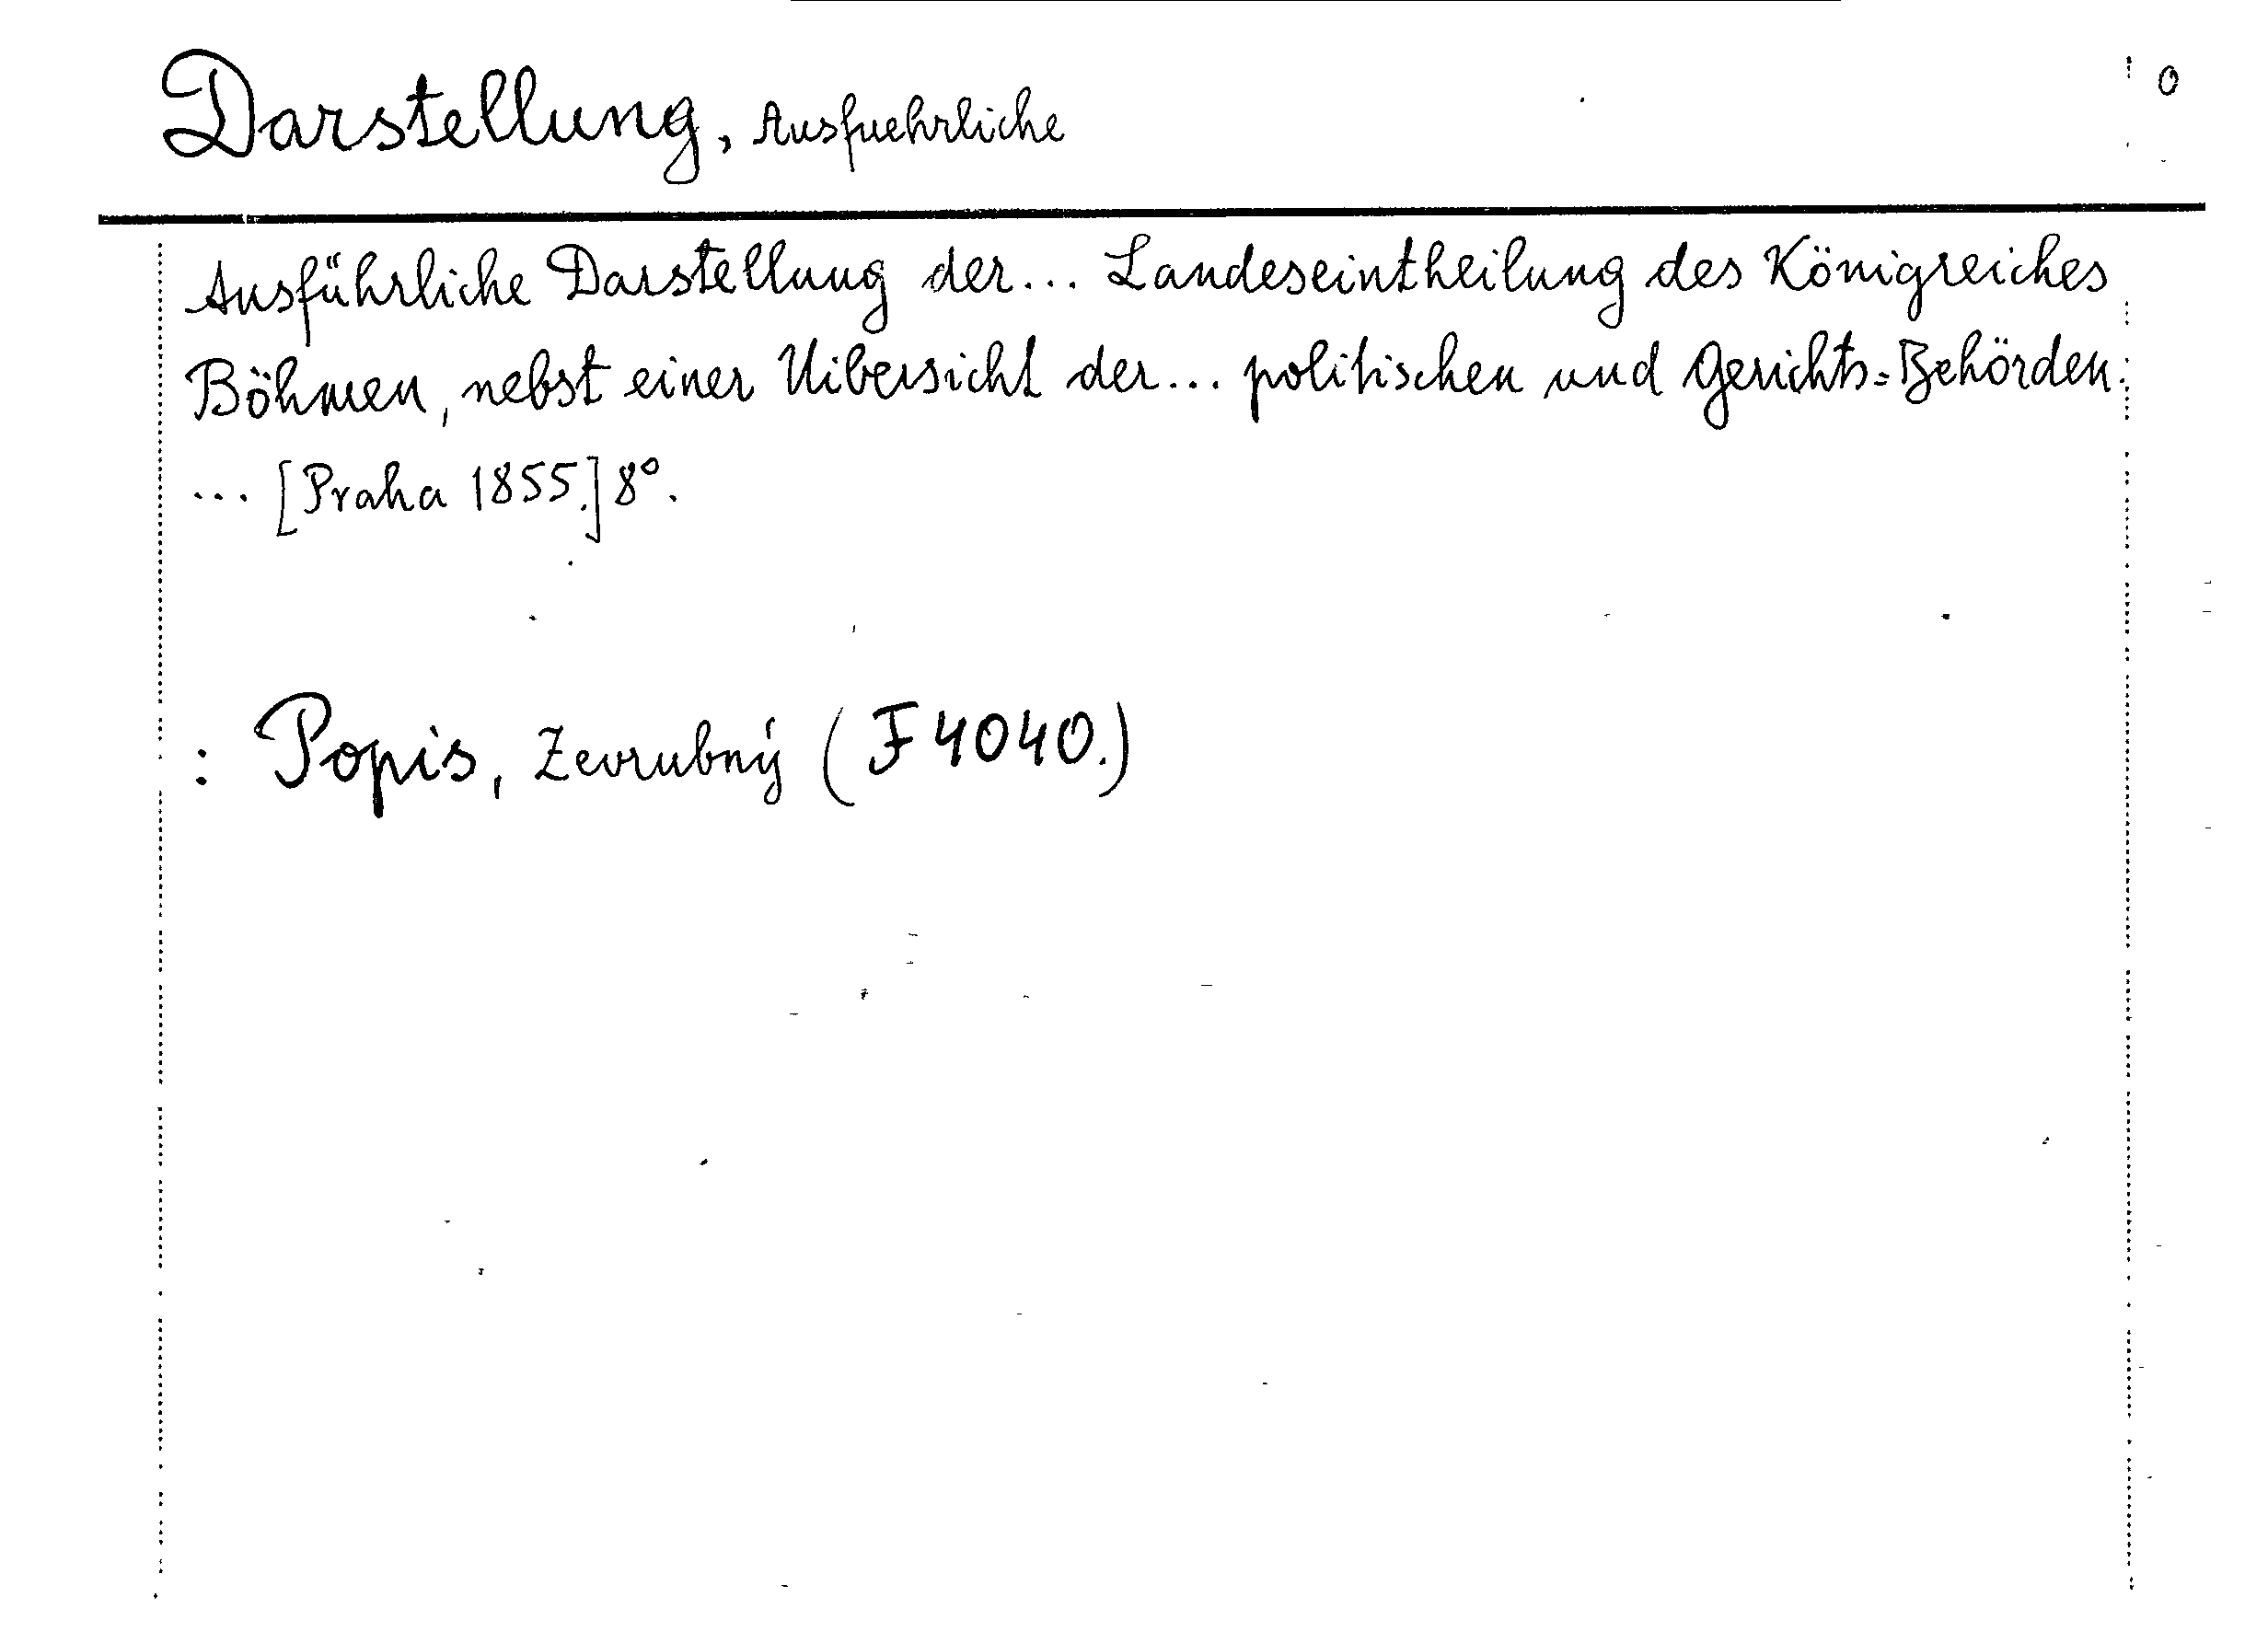 Darstellung, Ausfuehrliche
0
Ausführliche Darstellung der... Landeseintheilung des Königreiches
Böhmen, nebst einer Uibersicht der... politischen und Gerichts=Behörden
... [Praha 1855.] 8°.
: Popis, Zevrubný (F 4040.)